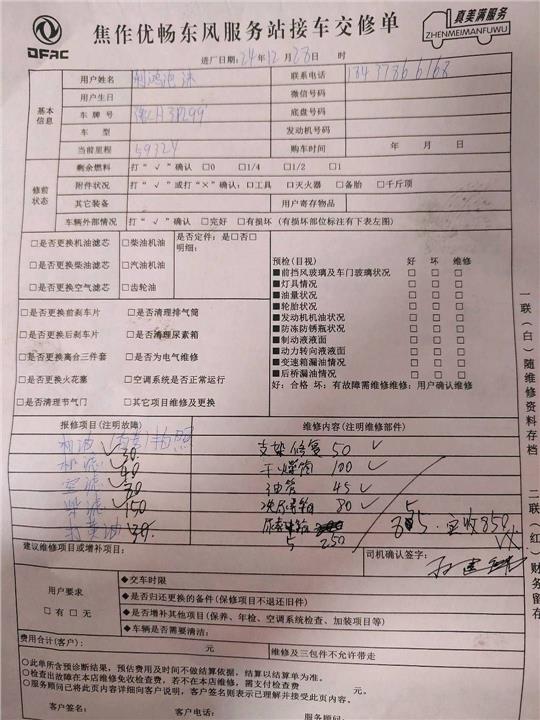 DFAC
焦作优畅东风服务站接车交修单
真美满服务
ZHENMEIMANFUWU
进厂日期: 24年12月28日 时
基本信息
用户姓名 联系电话
用户生日 微信号码
车牌号 底盘号码
车型 发动机号码
当前里程 59324 购车时间 年 月 日
修前状态
剩余燃料 打“√”确认 □0 □1/4 □1/2 □1
附件状况 打“√”或打“×”确认: □工具 □灭火器 □备胎 □千斤顶
其它装备 用户寄存物品
车辆外部情况 打“√”确认 □完好 □有损坏 (有损坏部位标注有下表左图)
□是否更换机油滤芯 □柴油机油 是否定件: 是□否□
□是否更换柴油滤芯 □汽油机油 明细:
□是否更换空气滤芯 □齿轮油
预检(目视) 好 坏 维修
■前挡风玻璃及车门玻璃状况 □ □ □
■灯具情况 □ □ □
■油量状况 □ □ □
■轮胎状况 □ □ □
■发动机机油状况 □ □ □
■防冻防锈瓶状况 □ □ □
■制动液液面 □ □ □
■动力转向液液面 □ □ □
■变速箱漏油情况 □ □ □
■后桥漏油情况 □ □ □
好: 合格 坏: 有故障需维修维修: 用户确认维修
□是否更换前刹车片 □是否清理排气筒
□是否更换后刹车片 □是否清理尿素箱
□是否更换离合三件套 □是否为电气维修
□是否更换火花塞 □空调系统是否正常运行
□是否清理节气门 □其它项目维修及更换
报修项目(注明故障) 维修内容(注明维修部件)
机油 拍照 支架修复 50 √
机滤 40 干燥筒 100 √
空滤 油管 45 √
柴滤 √150 80 √
打黄油 30 尿素 250
应收850
建议维修项目或增补项目: 司机确认签字:
用户要求
□有 □无
◆交车时限
◆是否归还更换的备件(保修项目不退还旧件)
◆是否增补其他项目(保养、年检、空调系统检查、加装项目等)
◆车辆是否需要清洁:
费用合计(客户): 元 维修及三包件不允许带走
○此单所含预诊断结果, 预估费用及时间不做结算依据, 结算以结算单为准.
○检查出故障在本店维修免收检查费, 若不在本店维修, 需支付检查费 元.
○服务顾问已将此页内容详细向客户说明, 客户签名则表示已理解并接受此页内容.
客户签名: 客户电话: 服务顾问:
一联(白)随维修资料存档
二联(红)财务留存